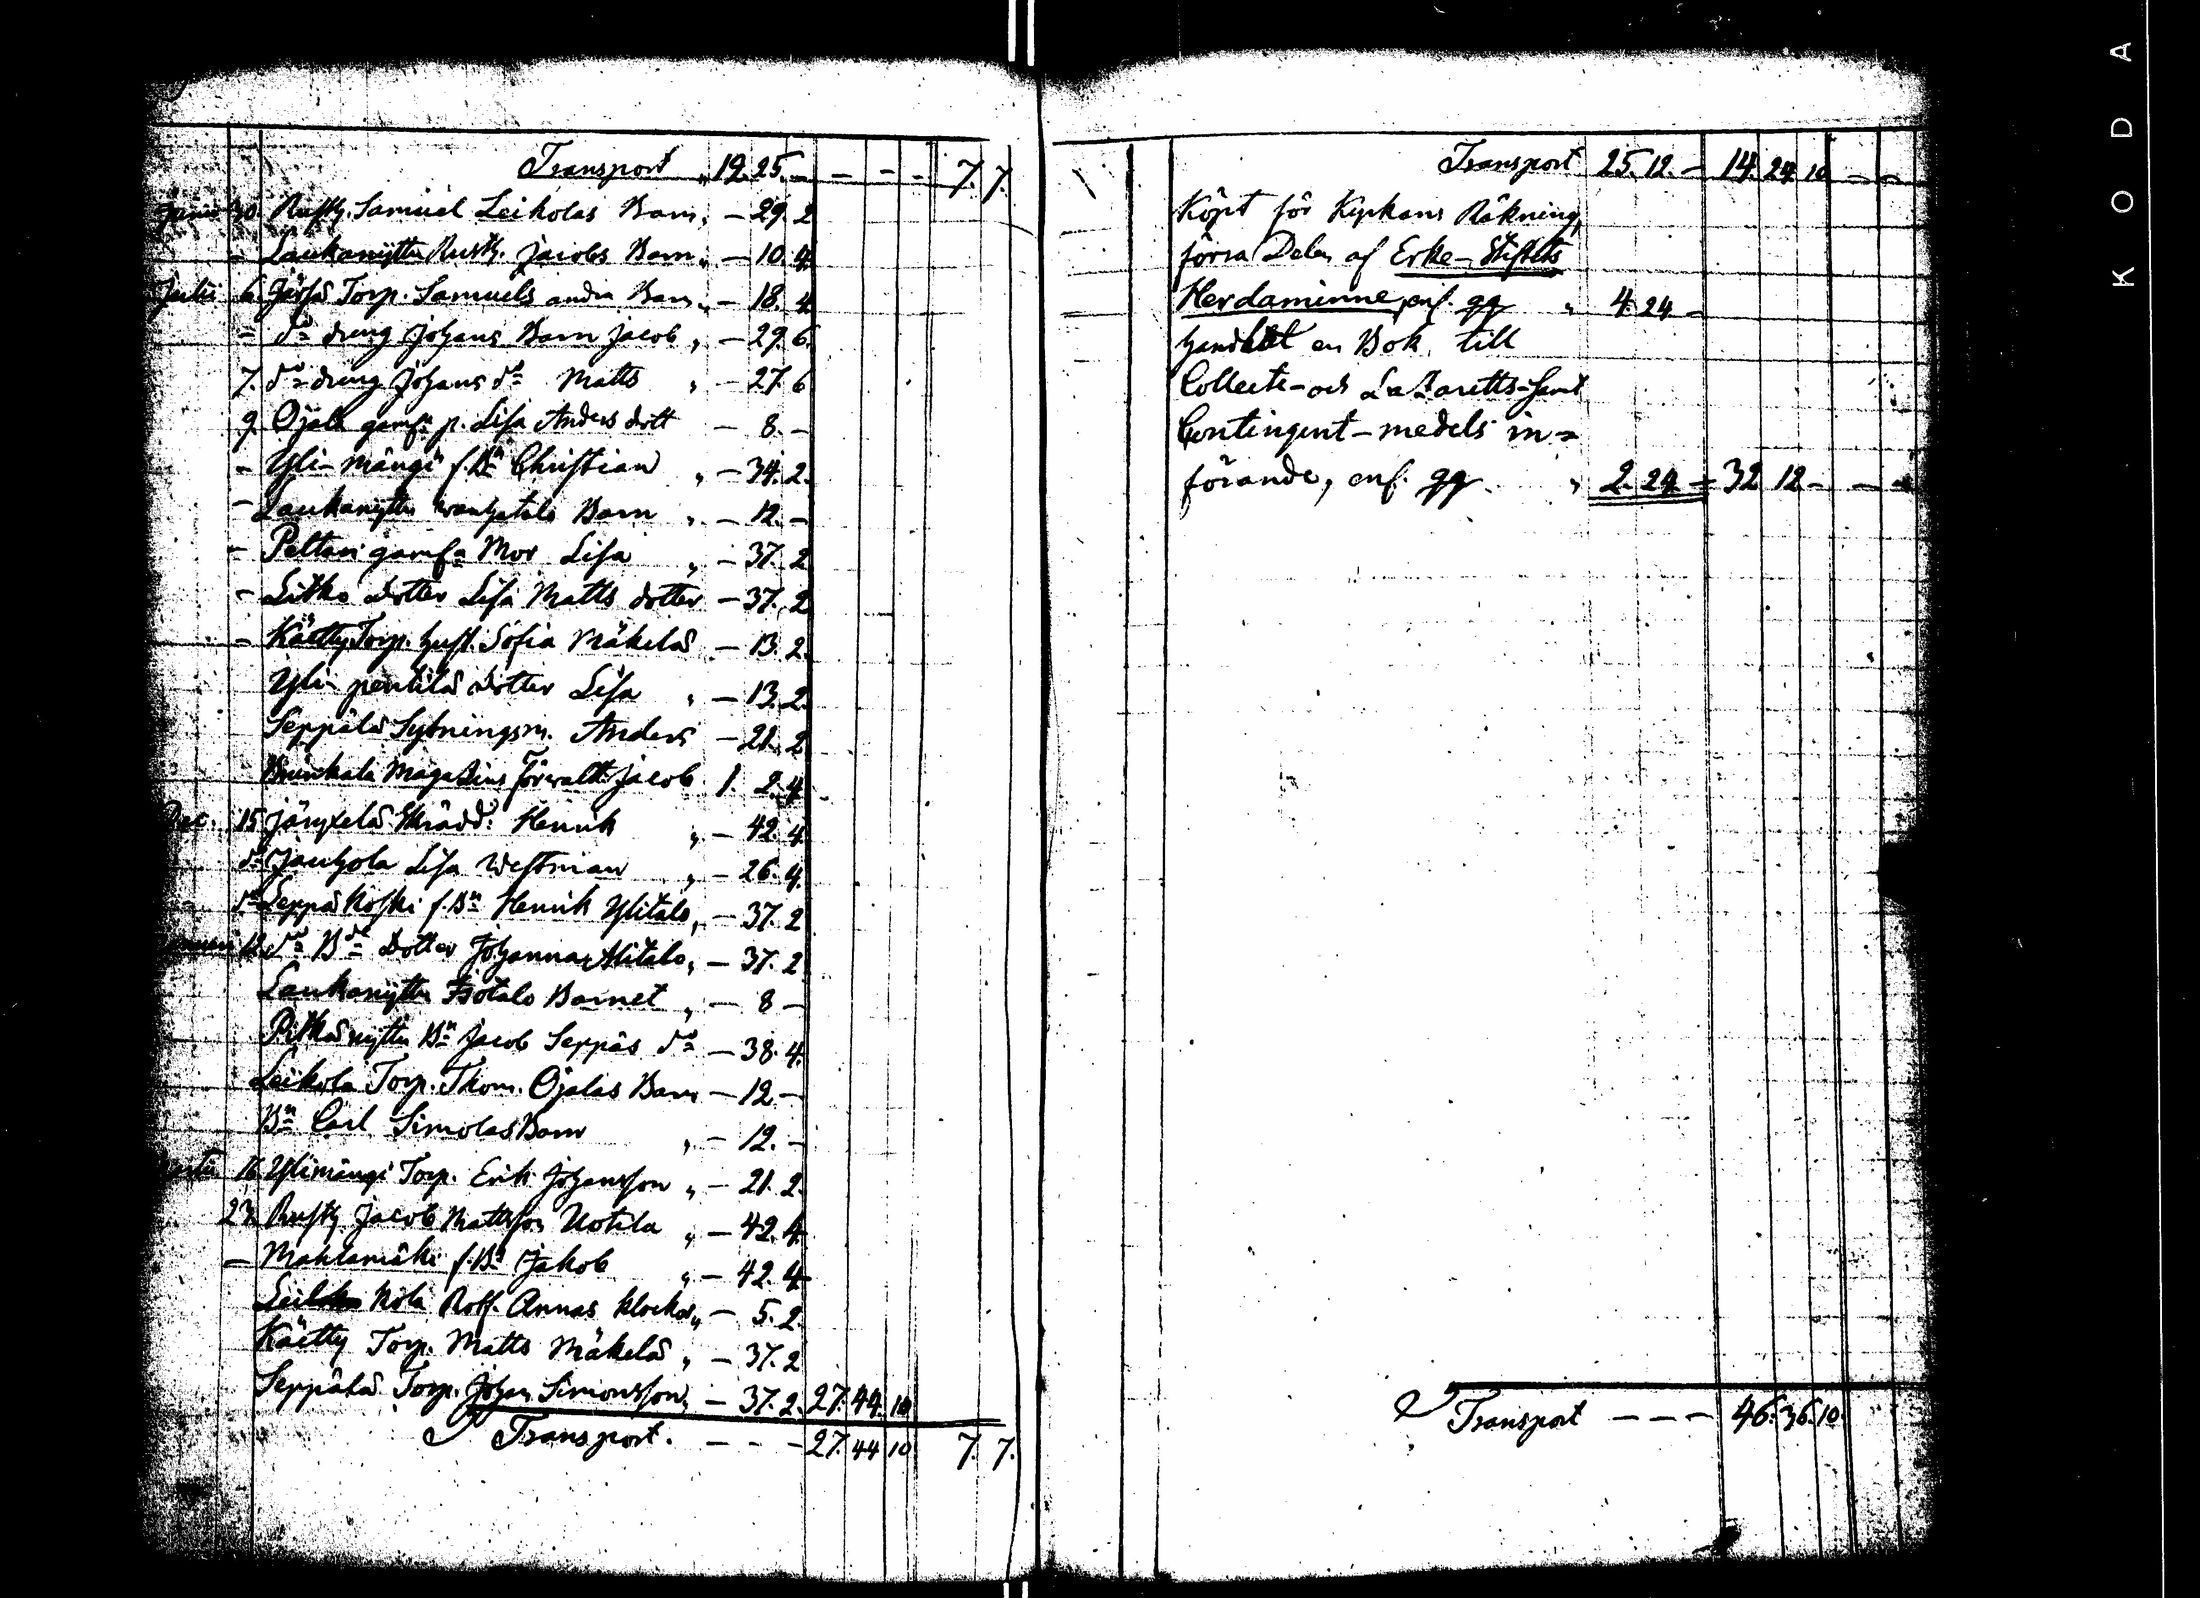 Transport " 12. 25. – – – – 7. 7.
Junii 30. Rusth. Samuel Leikolas Barn " – 29. 2
– Laukanyttu Rusth. Jacobs Barn " – 10. 4
Julii 6. Torp. Samuels andra Barn " – 18. 4
– do dreng Johans Barn Jacob " – 29. 6.
7. do dreng Johans do Matts " – 27. 6
9. Ojala p. Lisa Anders dott – 8. –
– Yli-mängi f. Bn Christian " – 34. 2.
– Laukanyttu Barn " – 12. –
– Peltari Mor Lisa " – 37. 2
– Dotter Lisa Matts dotter – 37. 2
– Käetty Torp. hust. Sofia Mäkelä – 13. 2.
Yli-pentilä dotter Lisa " – 13. 2.
Seppälä Sytningsm. Anders – 21. 2
Magazins Förvalt. Jacob 1. 2. 4
Dec. 15 Skrädd. Henrik " – 42. 4
do Jauhola Lisa Westman " – 26. 4.
do Seppä Koski f. Bn Henrik Ylitalo " – 37. 2
12. do Bde Dotter Johanna Alitalo " – 37. 2
Laukanyttu Isotalo Barnet " – 8 –
Pitkänyttu Bn Jacob Seppäs do – 38. 4.
Leikola Torp. Thom. Ojalas Barn – 12 –
Bn Carl Simolas Barn " – 12. –
16. Ylimängi Torp. Erik Johansson " – 21. 2.
23. Rusth. Jacob Mattsson Uotila " – 42. 4.
– Mahlamäki f. Bn Jakob " – 42. 4
Annas klockor " – 5. 2.
Käetty Torp. Matts Mäkelä " – 37. 2
Seppälä Torp. Johan Simonsson – 37. 2. 27. 44. 10
Transport. – – – 27. 44 10 7. 7.
Transport 25. 12. – 14. 24 10 – –
Köpt för Kyrkans Räkning,
förra Delen af Erke-Stiftets
Herdaminne, enl. qq " 4. 24 –
en Bok till
Collecte- och Lazaretts-samt
Contingent-medels in-
förande, enl. qq. " 2. 24 – 32 12 – – –
Transport – – – 46. 36. 10.
KODA